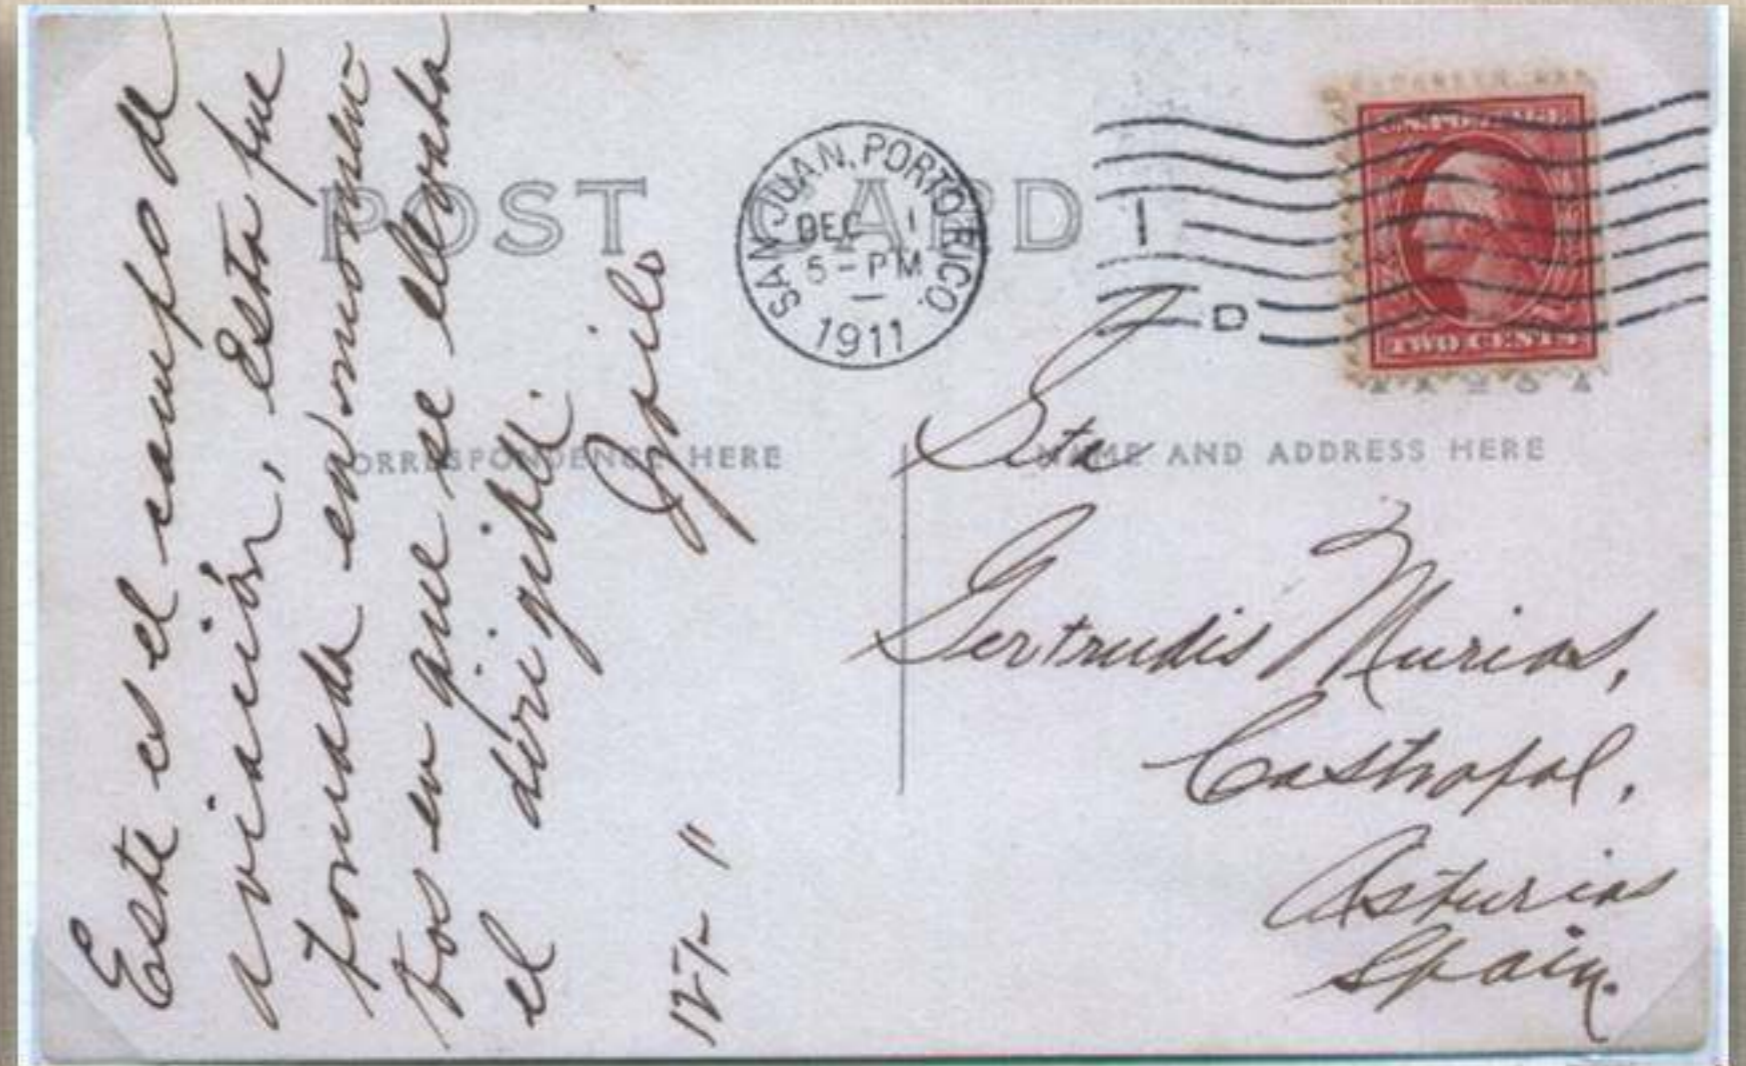 POST CARD
SAN JUAN, PORTO RICO.
DEC 1
5-PM
1911
1
D
U.S. POSTAGE
TWO CENTS
CORRESPONDENCE HERE
NAME AND ADDRESS HERE
Este es el campo de
aviación, Esta fue
tomada en momen
tos en que se elevaba
el dirigible.
12-1-11
Srta
Gertrudis Murias,
Castropol,
Asturias
Spain.